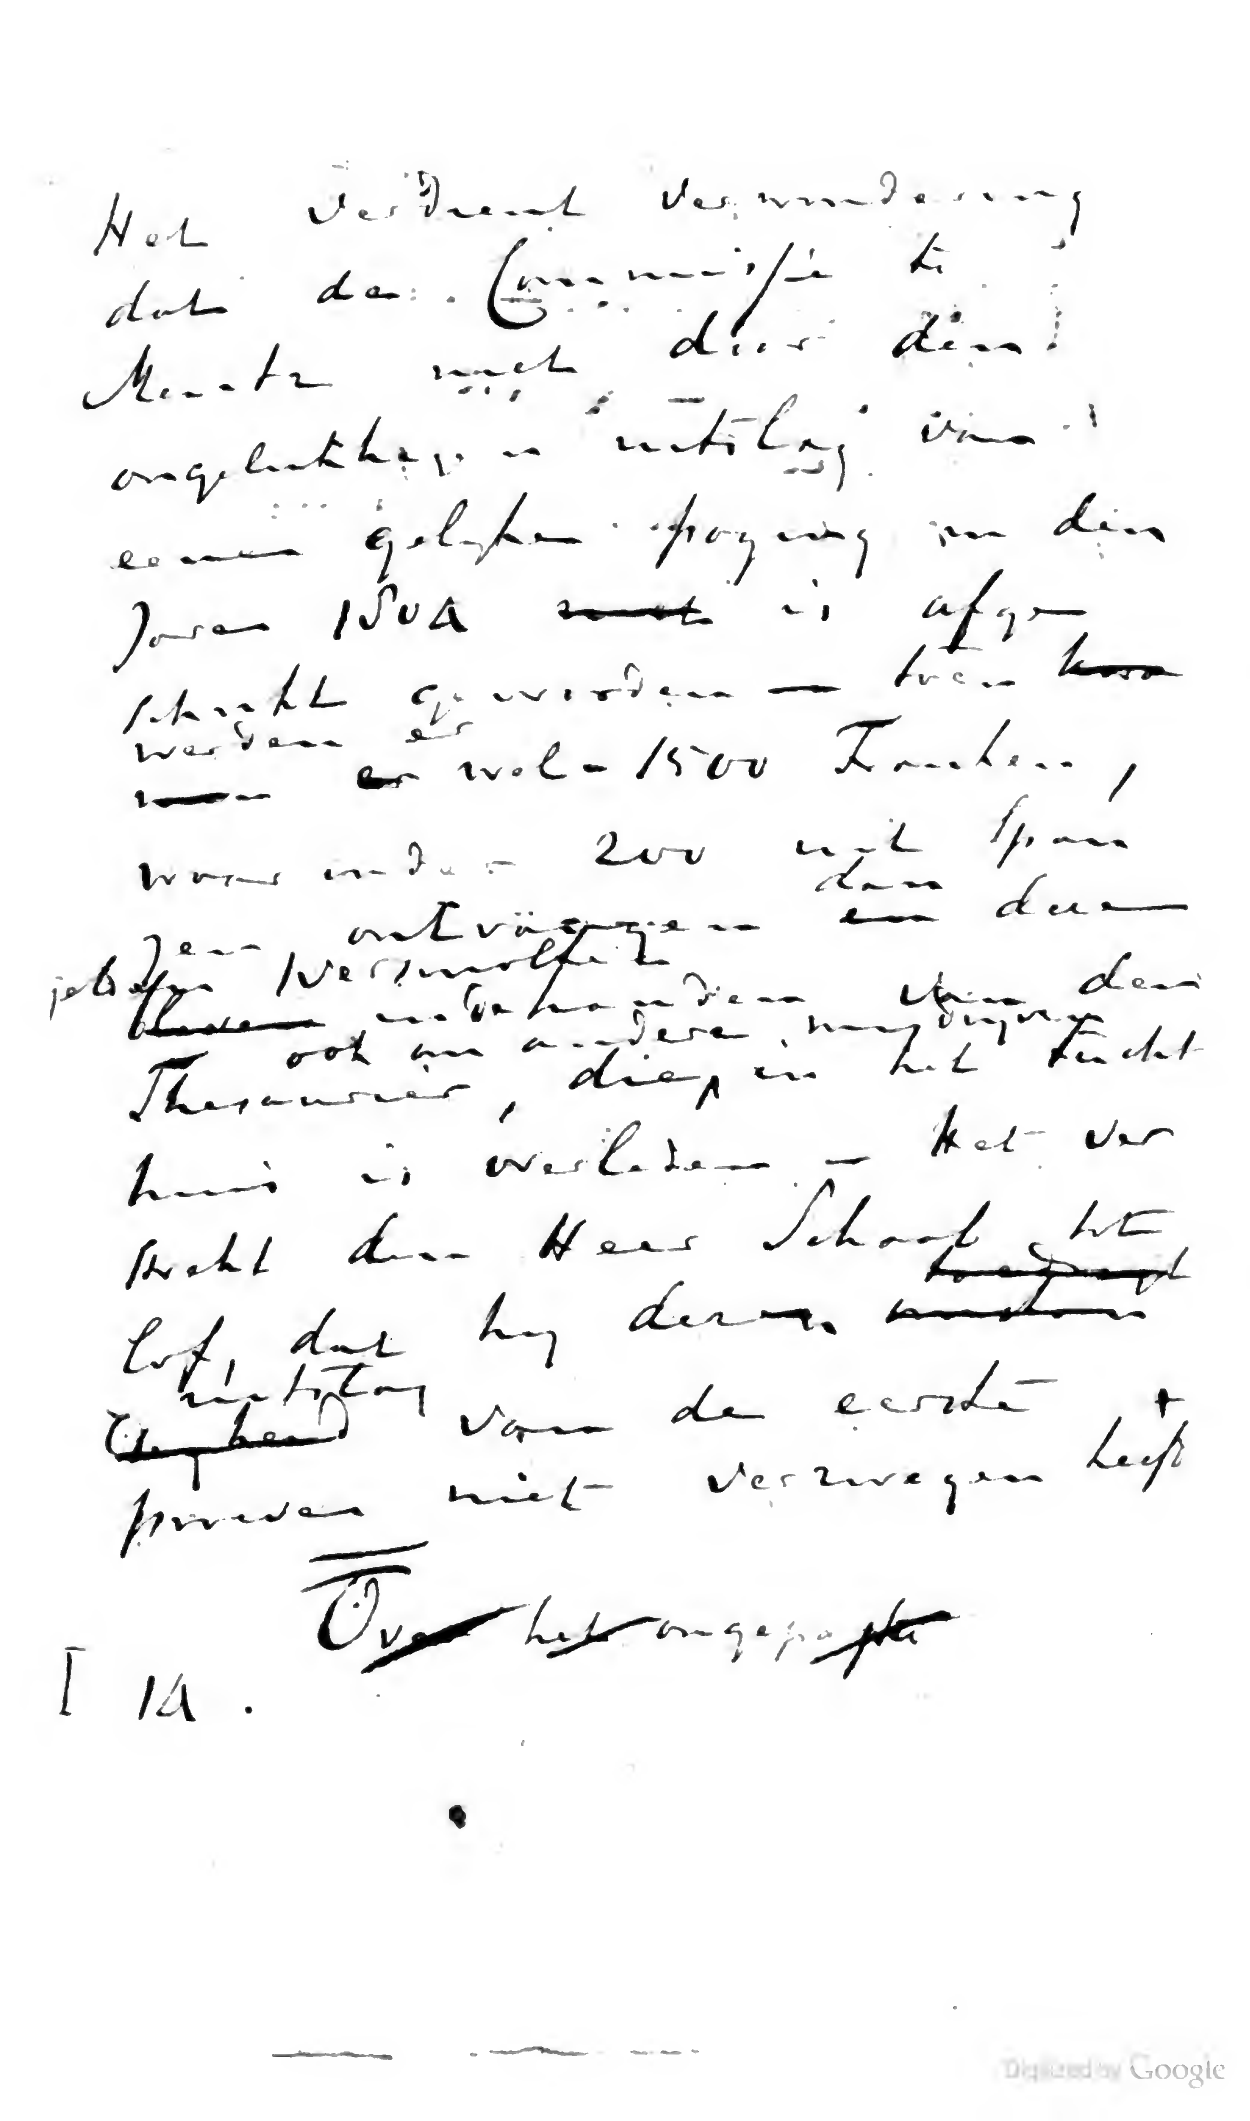 Het verdient verwondering
dat de Commissie te
Mentz niet door den
ongelukkigen uitslag van
eenen gelyken poging in den
Jaren 1804 is afge
schrikt geworden — toen
werden er
wel 1500 Franken,
waar onder 200 uit Span
dan
jen ontvangen en deze
versmolten
bleven in de handen van den
ook om andere misdryven
Thesaurier, die, in het tucht
huis is overleden — Het ver
strekt den Heer Schaab tot
lof, dat hy dezen
uitslag
van de eerste +
proeven niet verzwegen heeft
Over het ongepaste
I 14.
Digitized by Google